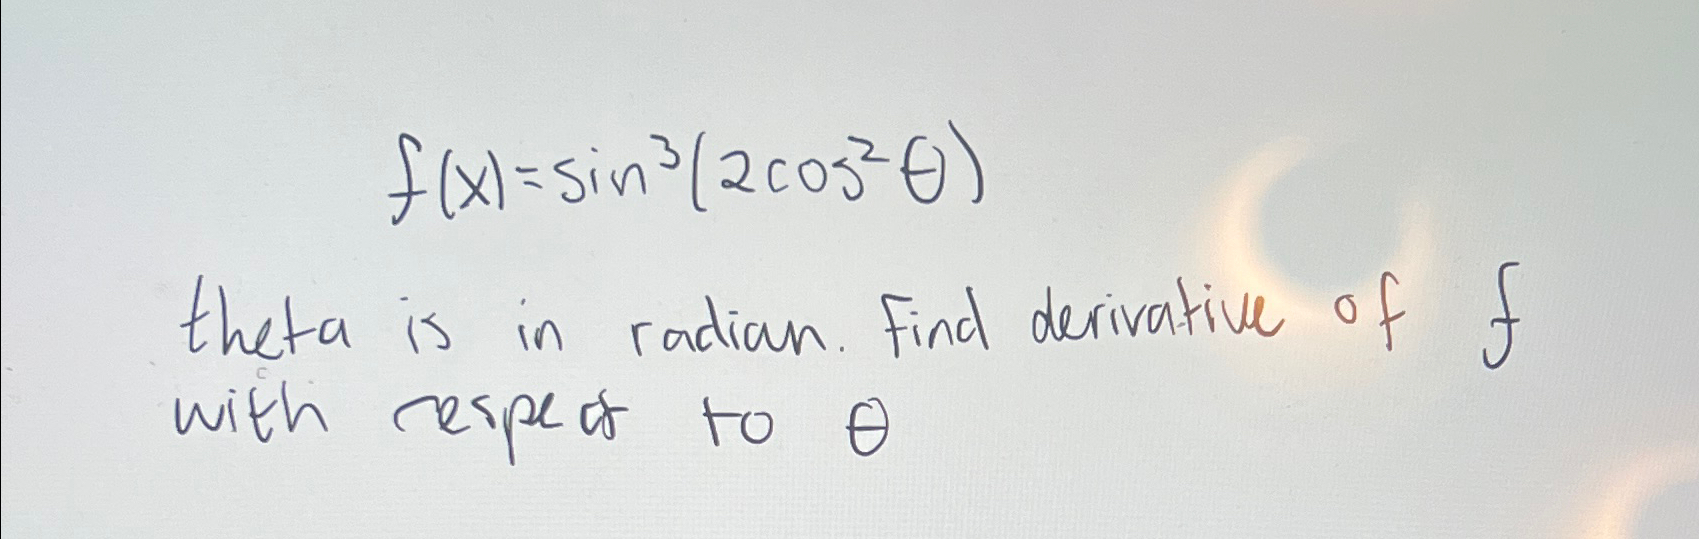 f(x)=sin³(2cos²θ)
theta is in radian. Find derivative of f
with respect to θ